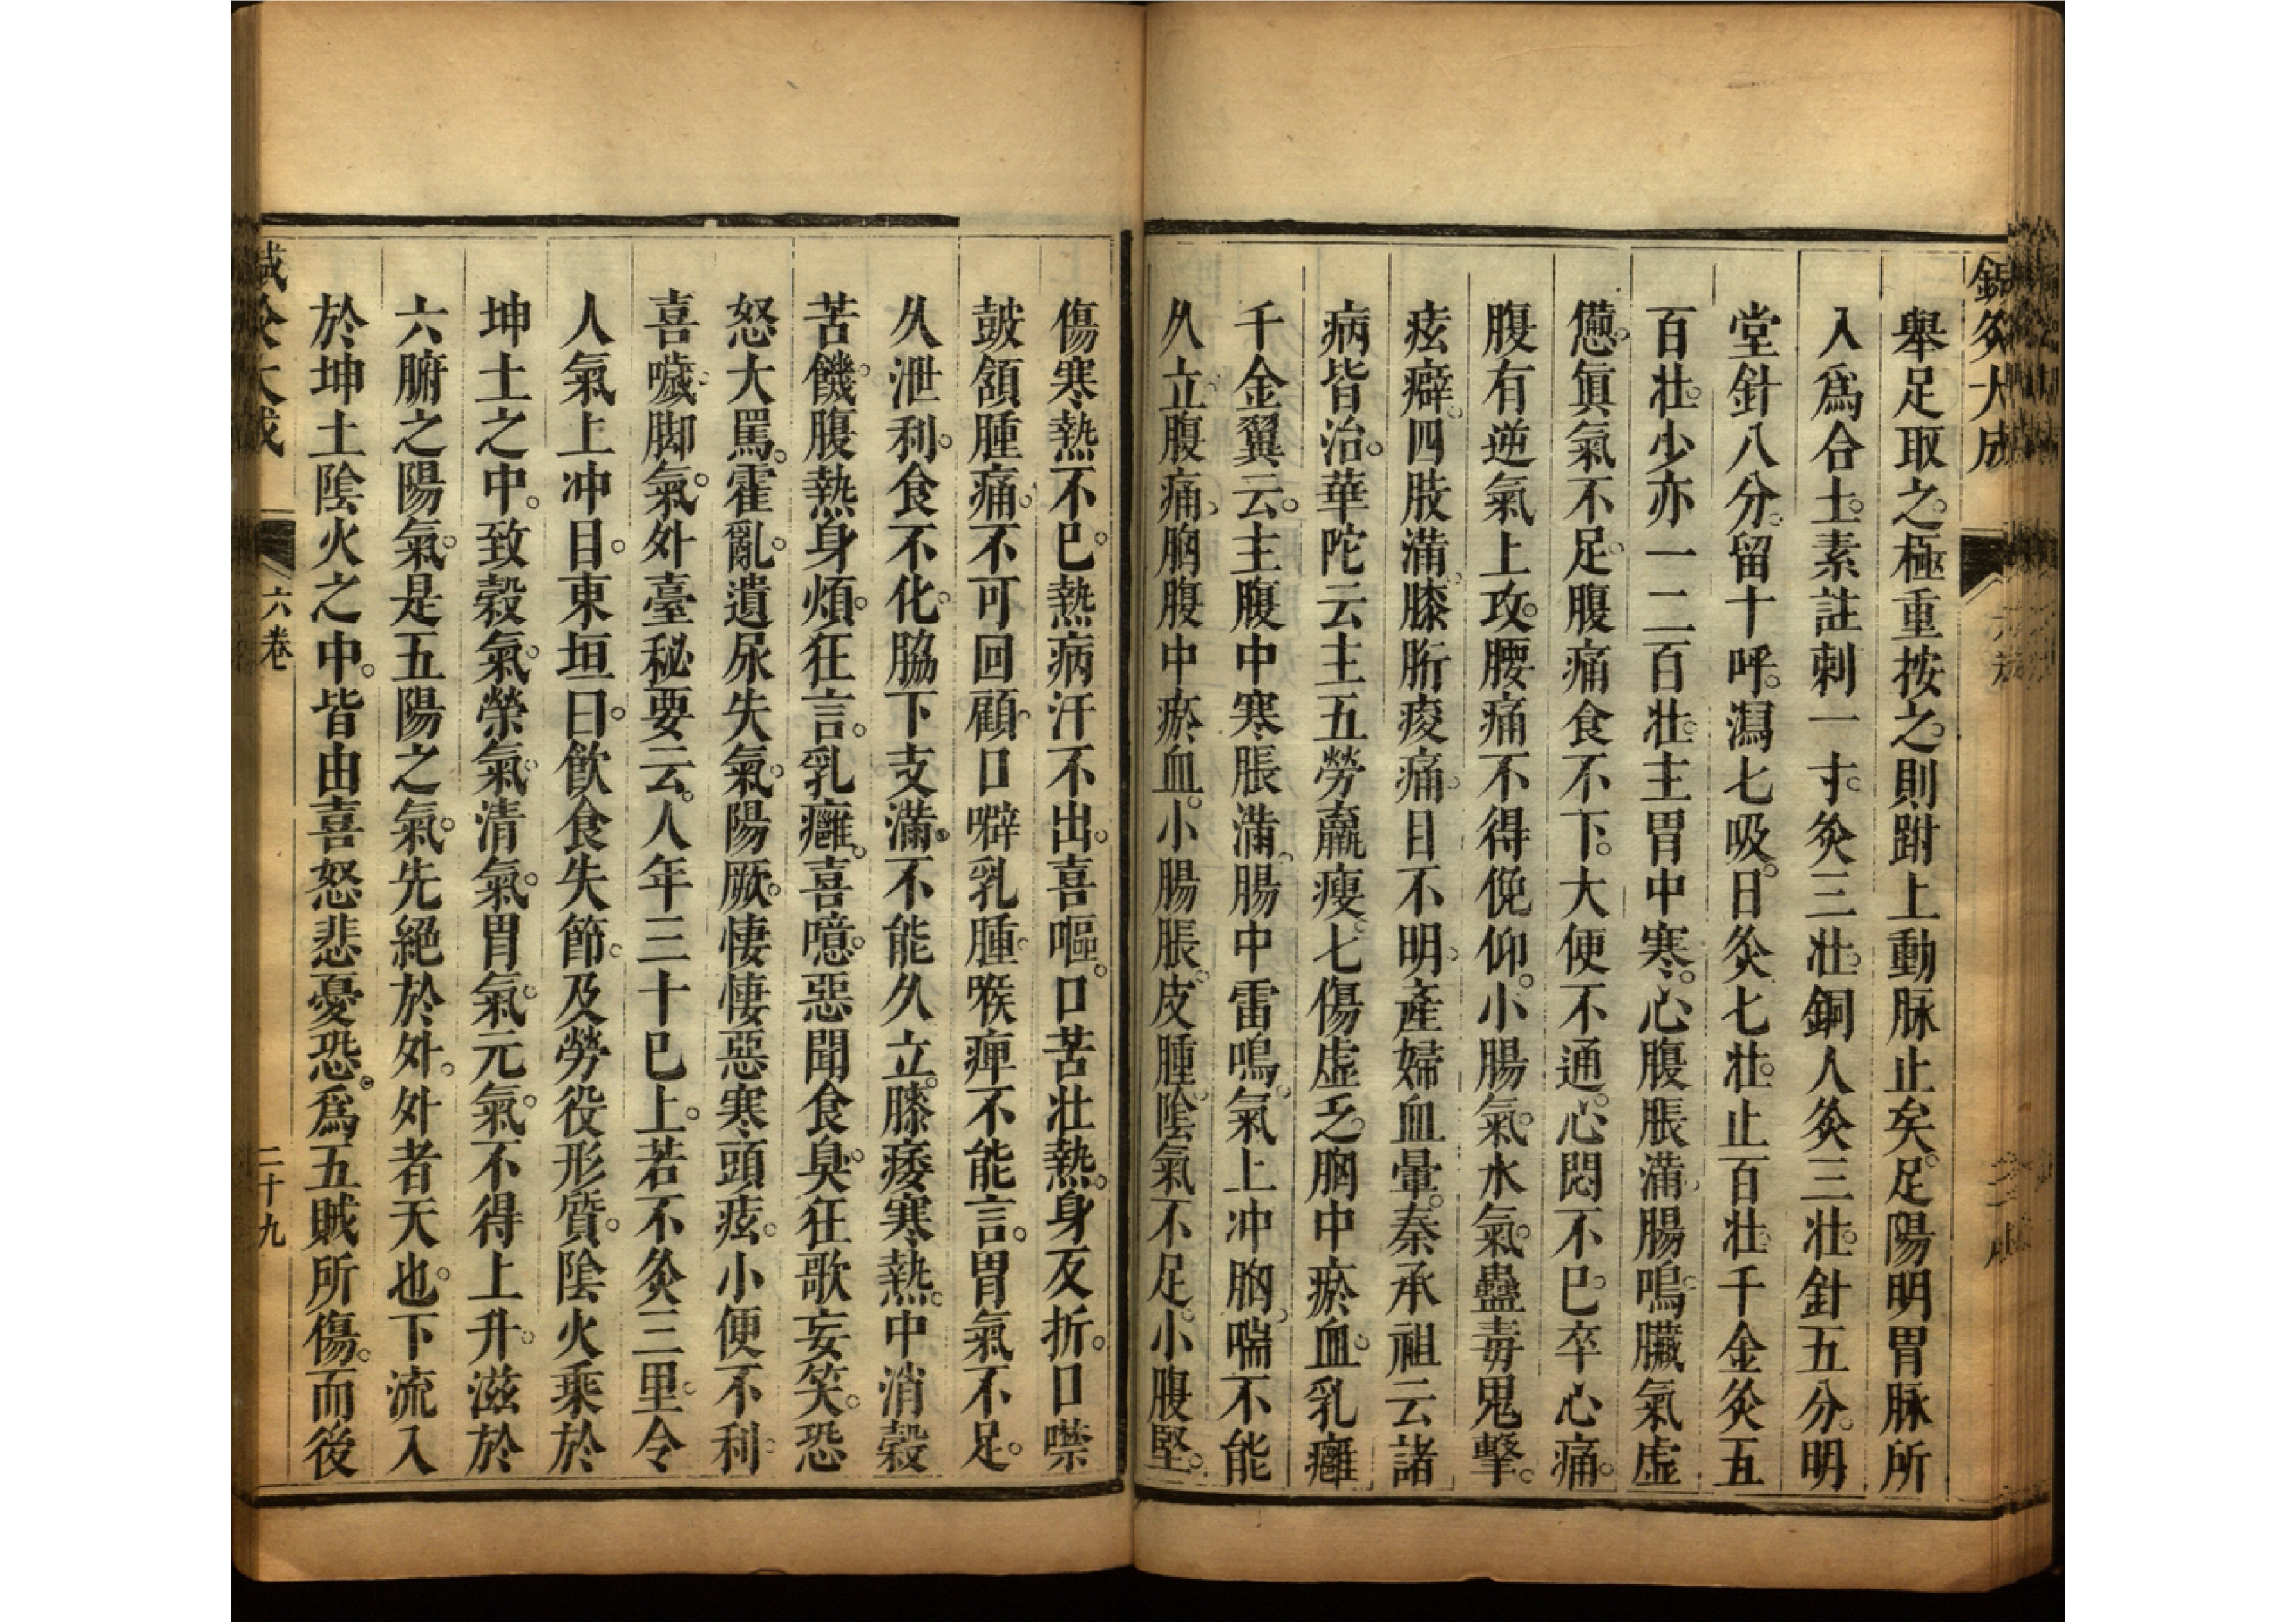 鍼灸大成
舉足取之。極重按之。則跗上動脉止矣。足陽明胃脉所
入爲合土。素註刺一寸。灸三壯。銅人灸三壯。針五分。明
堂針八分。留十呼。瀉七吸。日灸七壯。止百壯。千金灸五
百壯。少亦一二百壯。主胃中寒。心腹脹滿。腸鳴。臟氣虛
憊。眞氣不足。腹痛食不下。大便不通。心悶不已。卒心痛。
腹有逆氣上攻。腰痛不得俛仰。小腸氣。水氣。蠱毒鬼擊。
痃癖。四肢滿。膝胻痠痛。目不明。產婦血暈。秦承祖云諸
病皆治。華陀云主五勞羸瘦。七傷虛乏。胸中瘀血。乳癰
千金翼云。主腹中寒脹滿。腸中雷鳴。氣上冲胸。喘不能
久立。腹痛。胸腹中瘀血。小腸脹。皮腫。陰氣不足。小腹堅。
傷寒熱不已。熱病汗不出。喜嘔。口苦壯熱。身反折。口噤
鼓頷腫痛。不可回顧。口噼乳腫。喉痺不能言。胃氣不足。
久泄利。食不化。脇下支滿。不能久立。膝痿寒熱。中消穀
苦饑。腹熱身煩。狂言。乳癰。喜噫。惡聞食臭。狂歌妄笑。恐
怒大罵。霍亂。遺尿失氣。陽厥。悽悽惡寒。頭痃。小便不利。
喜噦。脚氣。外臺秘要云。人年三十已上。若不灸三里。令
人氣上冲目。東垣曰。飮食失節。及勞役形質。陰火乘於
坤土之中。致穀氣。榮氣。清氣。胃氣。元氣。不得上升。滋於
六腑之陽氣。是五陽之氣。先絕於外。外者天也。下流入
於坤土陰火之中。皆由喜怒悲憂恐。爲五賊所傷。而後
鍼灸大成
六卷
二十九